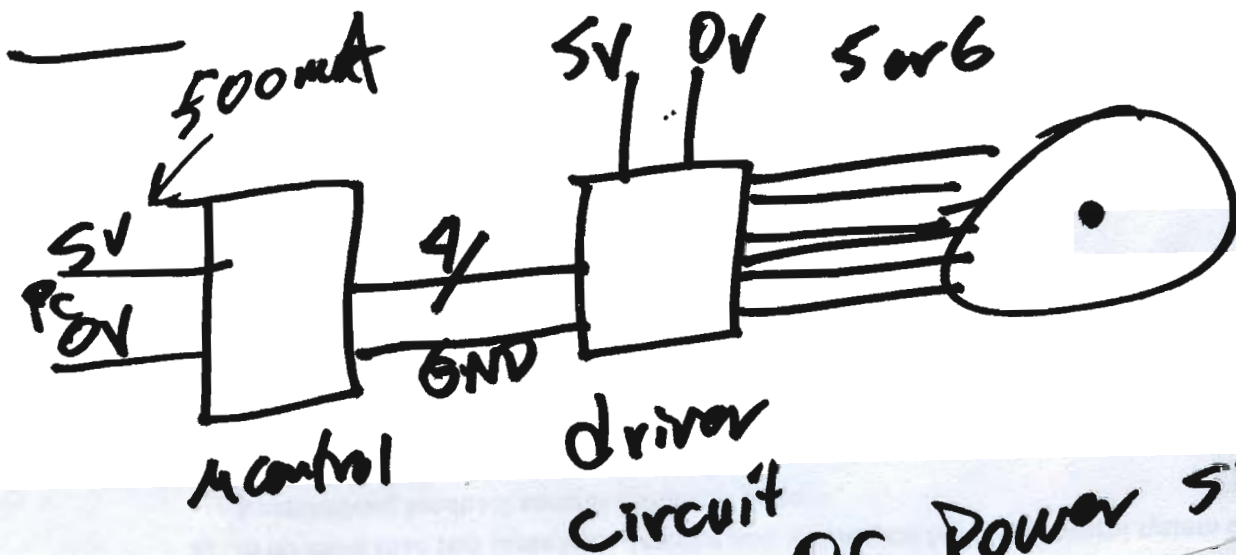 500mA
5V 0V 5 or 6
5V
PC
0V
4
GND
μcontrol
driver
circuit
DC Power